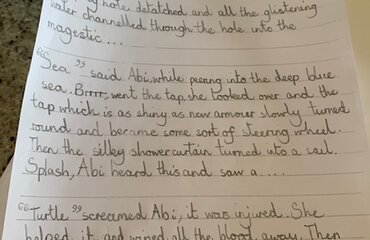 hole detatched and all the glistening
water channelled through the hole into the
magestic ...
"Sea" said Abi, while peering into the deep blue
sea. Brrrr, went the tap, she looked over and the
tap which is as shiny as new armour slowly turned
round and became some sort of steering wheel.
Then the silky shower curtain turned into a sail.
Splash, Abi heard this and saw a ....
"Turtle" screamed Abi, it was injured. She
helped it and wiped all the blood away. Then